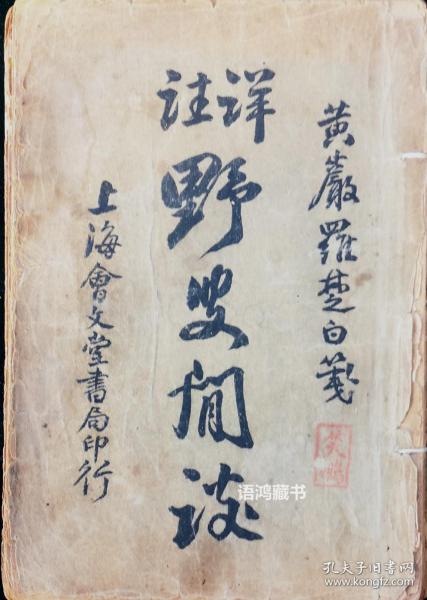 黃巖羅楚白箋
詳註
野叟閒談
上海會文堂書局印行
语鸿藏书
孔夫子旧书网
www.kongfz.com